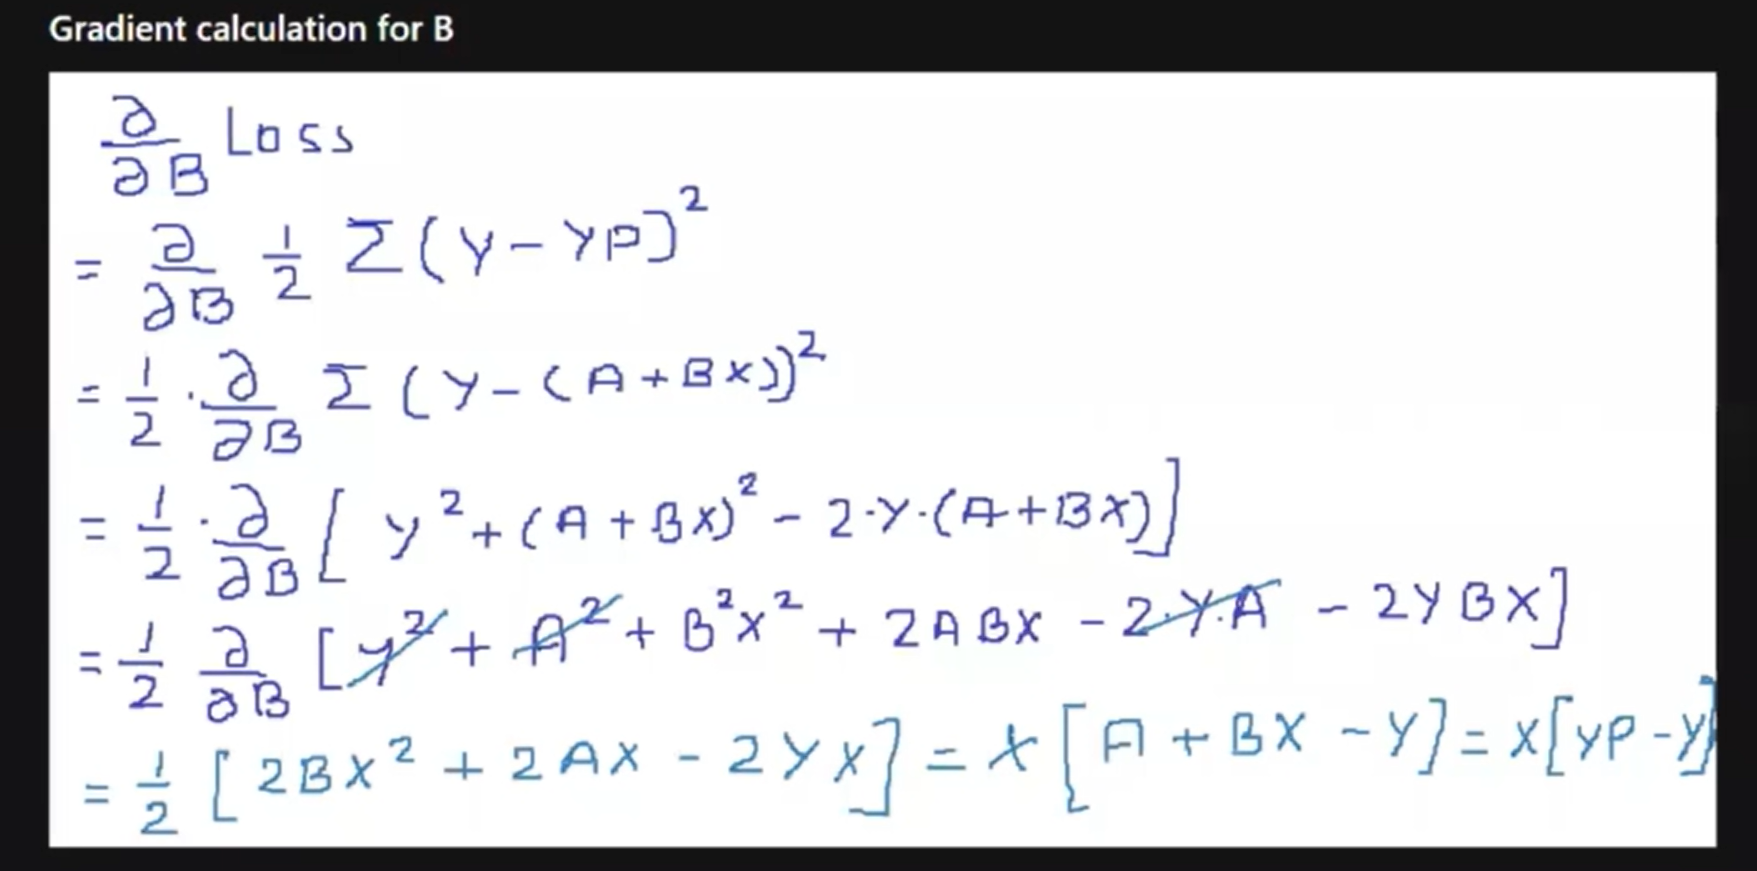 Gradient calculation for B
∂/∂B Loss
= ∂/∂B 1/2 Σ(Y-YP)²
= 1/2 · ∂/∂B Σ(Y-(A+BX))²
= 1/2 · ∂/∂B [Y²+(A+BX)² - 2·Y·(A+BX)]
= 1/2 ∂/∂B [Y² + A² + B²X² + 2ABX - 2·Y.A - 2YBX]
= 1/2 [2BX² + 2AX - 2YX] = X[A + BX - Y] = X[YP-Y]